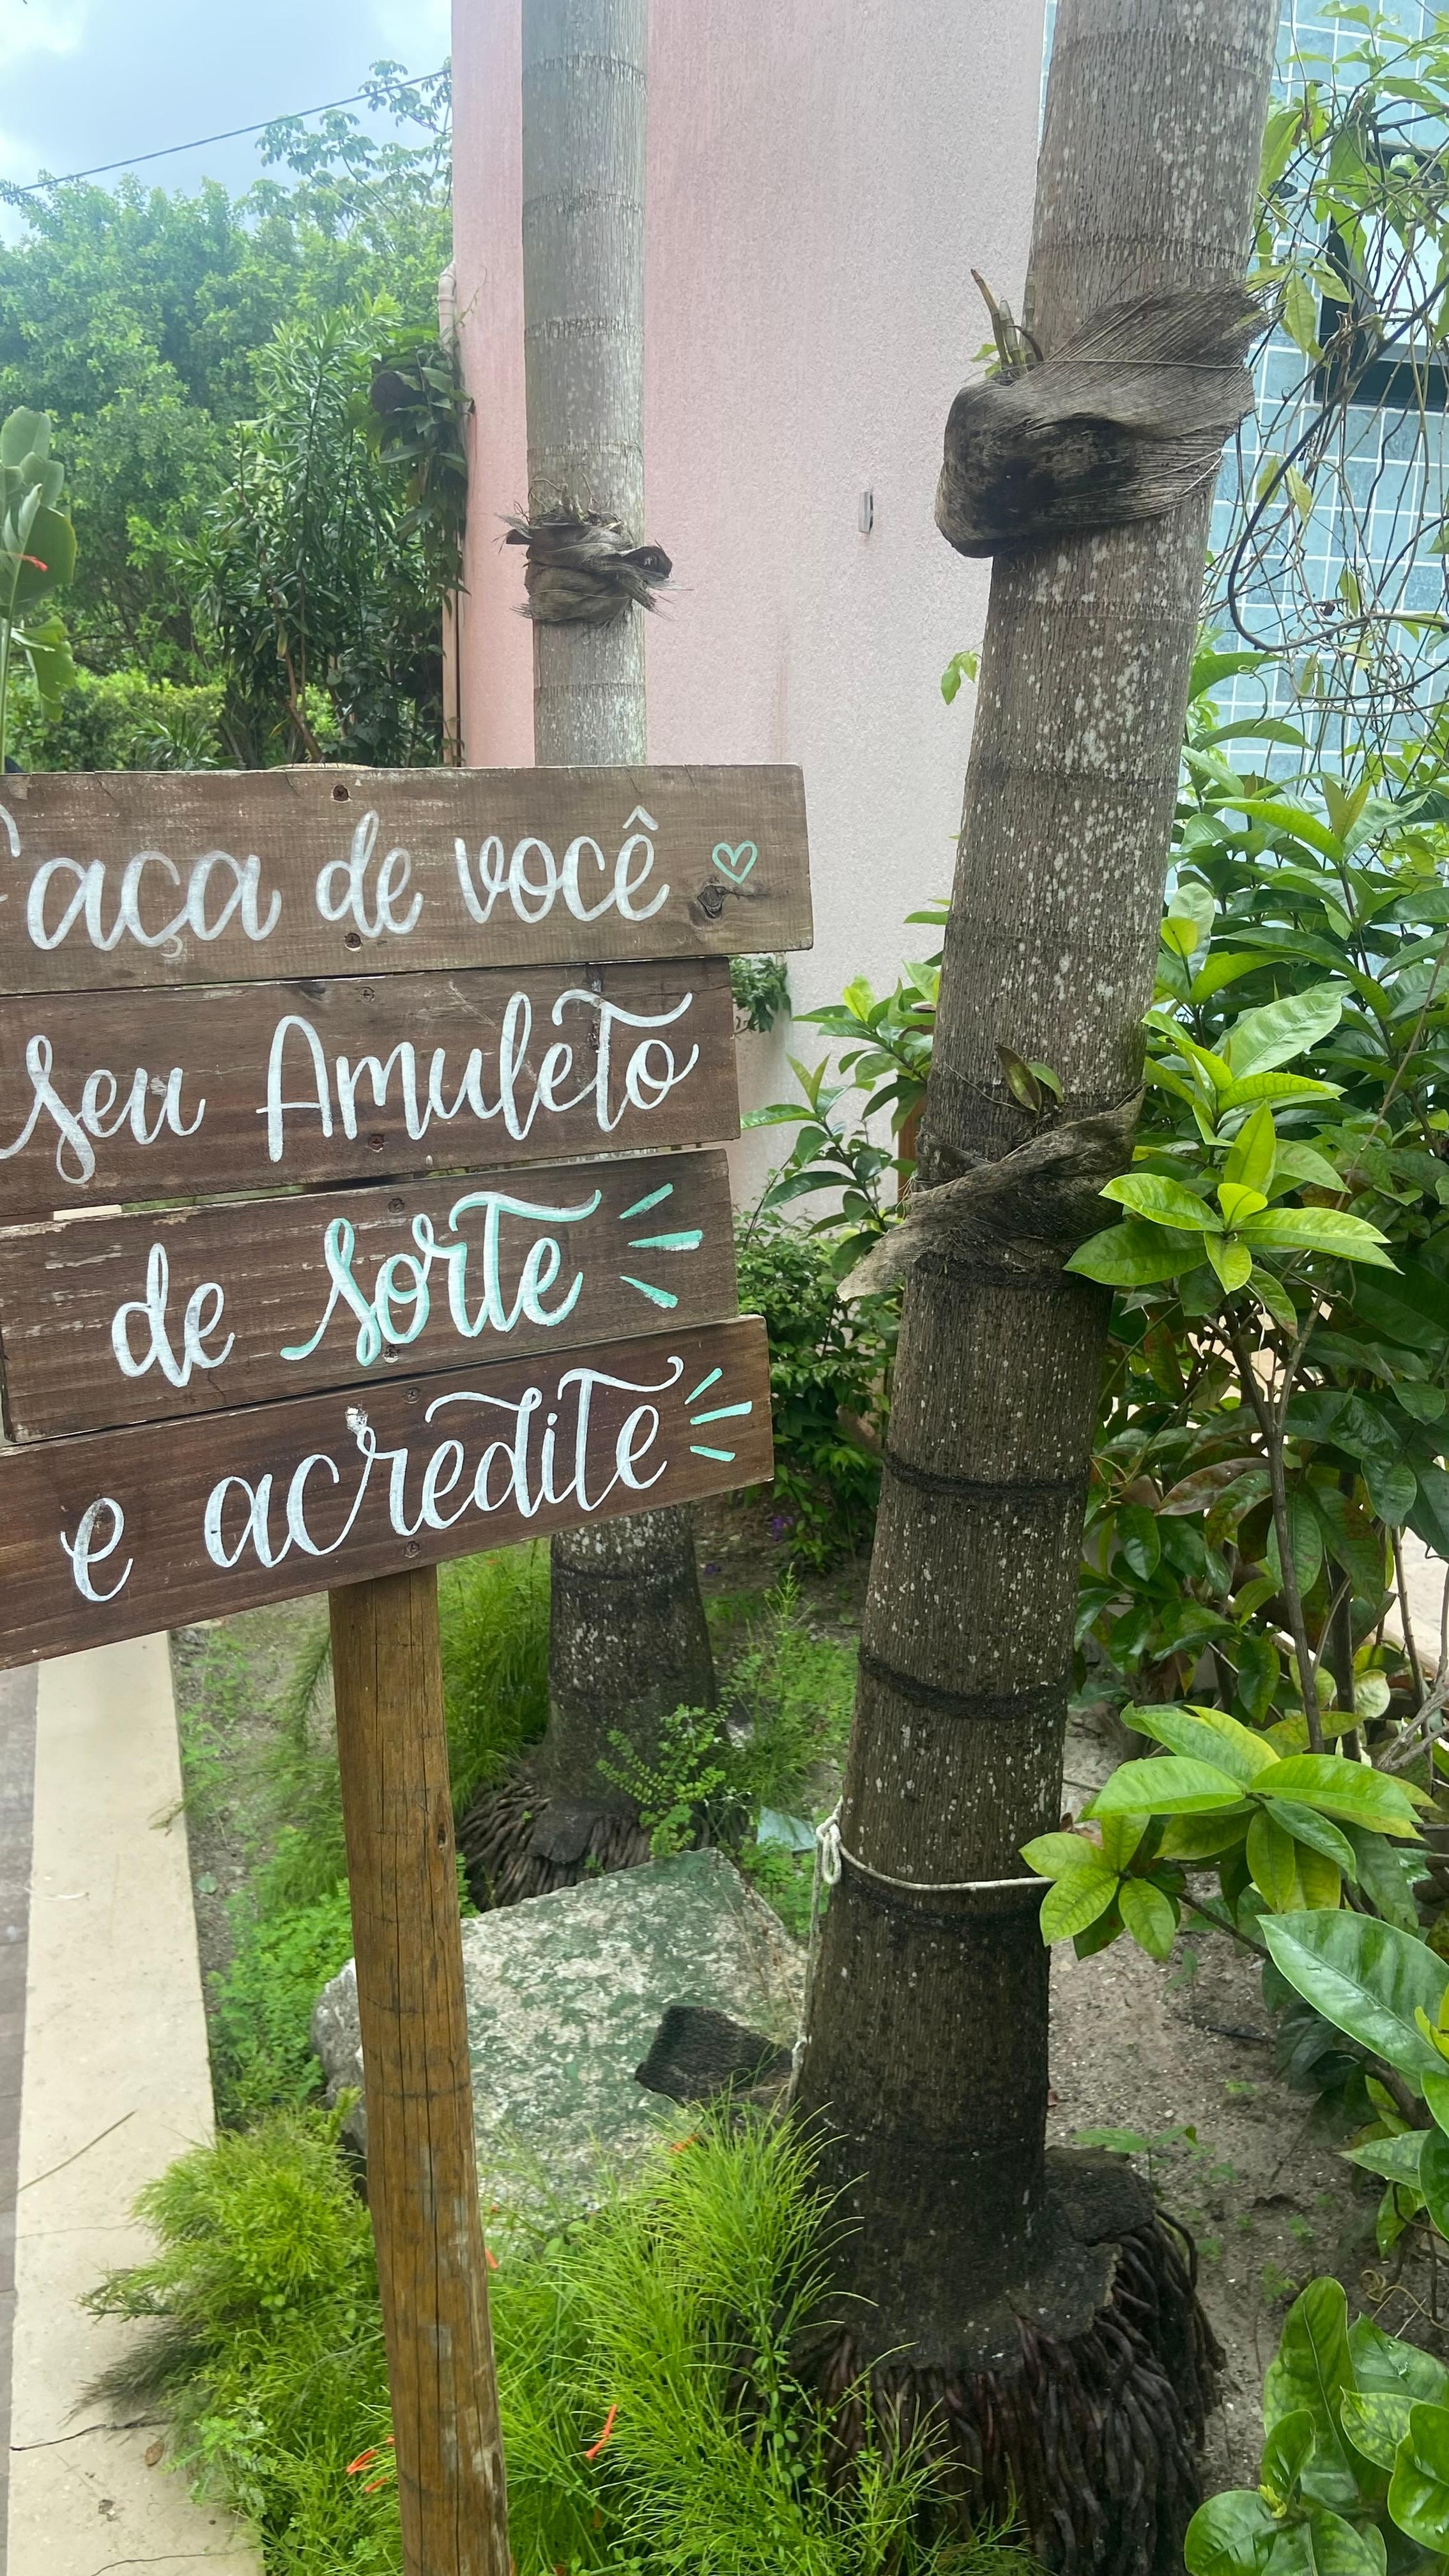 Faça de você
seu Amuleto
de sorte
e acredite